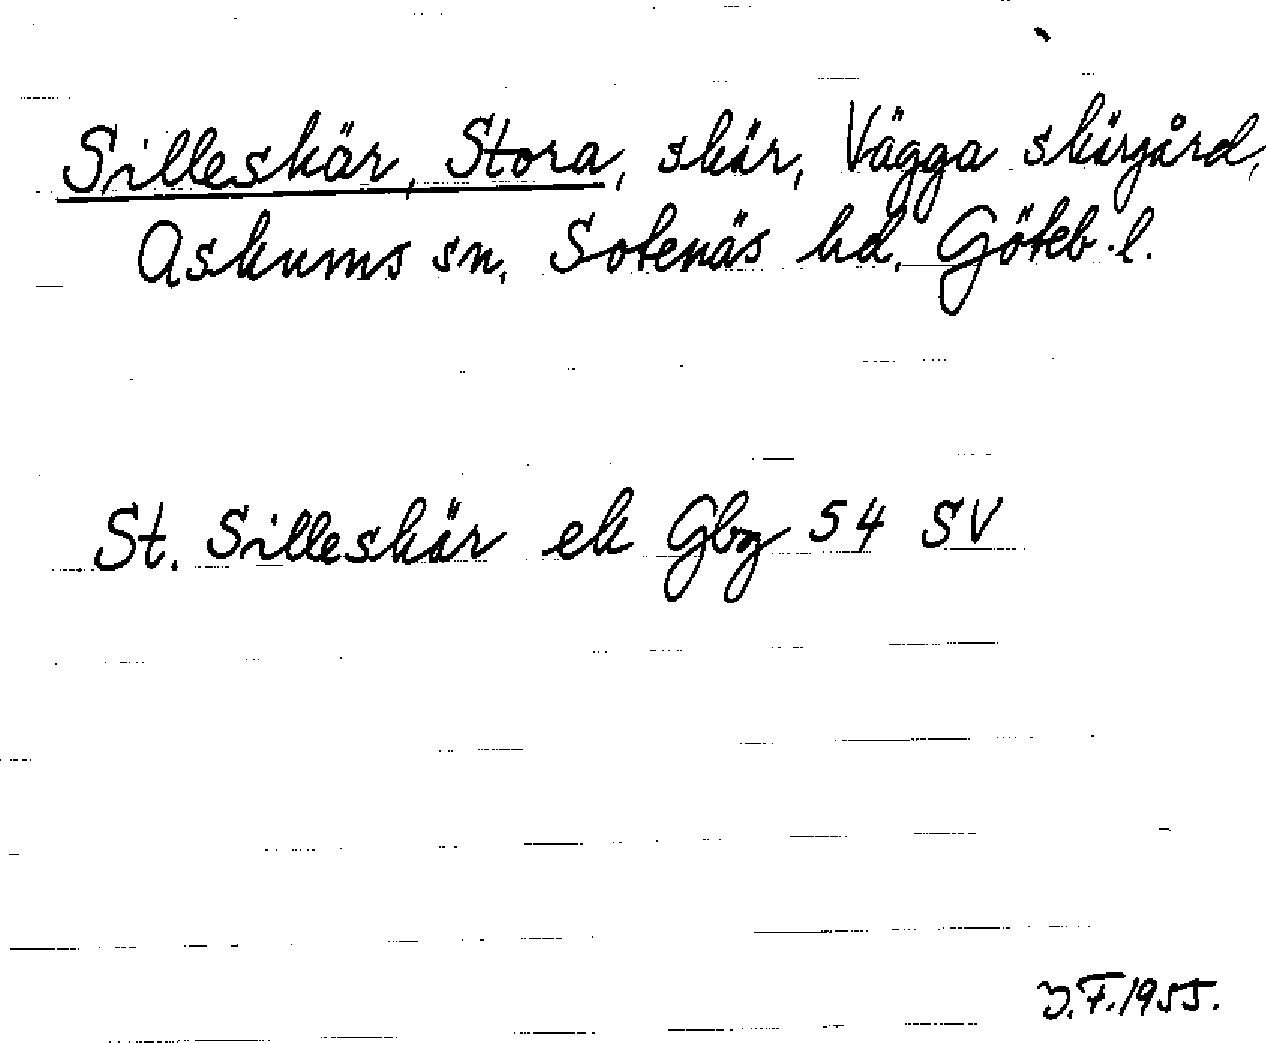 Silleskär, Stora, skär, Vägga skärgård,
Askums sn, Sotenäs hd. Göteb. l.
St. Silleskär ek Gbg 54 SV
J.F.1955.